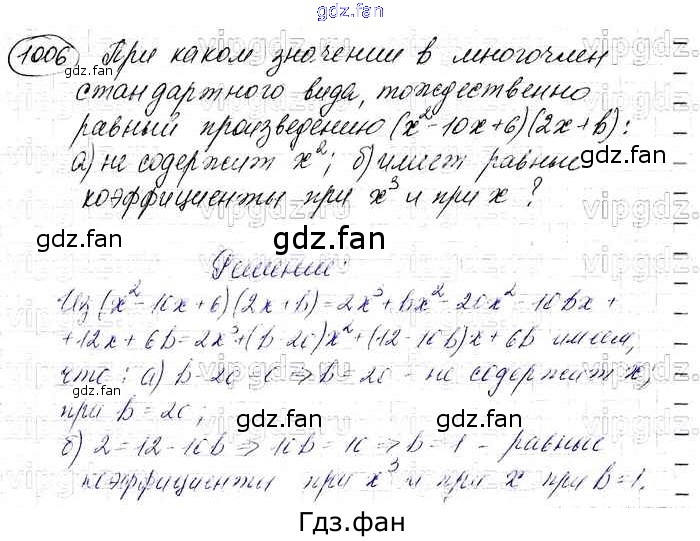 gdz.fan
1006 При каком значении в многочлен
стандартного вида, тождественно
равный произведению (x²-10x+6)(2x+в):
а) не содержит x²; б) имеет равные
коэффициенты при x³ и при x ?
Решение
Из (x²-10x+6)(2x+в)=2x³+вx²-20x²-10вx+
+12x+6в=2x³+(в-20)x²+(12-10в)x+6в имеем,
что: а) в-20=0⇒в=20 - не содержит x²,
при в=20;
б) 2=12-10в⇒10в=10⇒в=1 - равные
коэффициенты при x³ и при x при в=1.
Гдз.фан